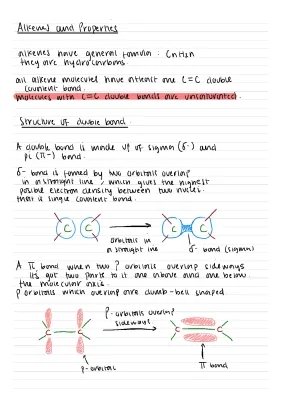 Alkenes and Properties
alkenes have general formula : CnH2n
they are hydrocarbons.
all alkene molecules have atleast one C=C double
covalent bond.
molecules with C=C double bonds are unsaturated.
Structure of double bond
A double bond is made up of sigma (σ-) and
pi (π-) bond.
σ- bond is formed by two orbitals overlap
in a straight line, which gives the highest
possible electron density between two nuclei.
that is single covalent bond.
C C
C C
orbitals in
a straight line
σ- bond (sigma)
A π bond when two P orbitals overlap sideways
its got two parts to it one above and one below
the molecular axis.
P orbitals which overlap are dumb-bell shaped.
C C
P-orbitals overlap
sideways
C C
p-orbital
π bond